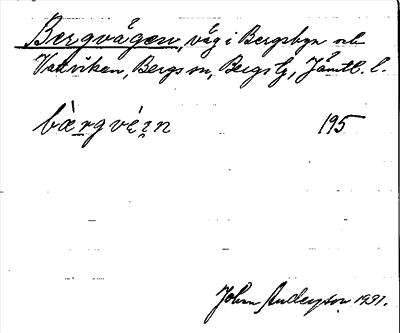 Bergvägen, väg i Bergsbyn och
Vattviken, Bergs sn, Bergs tg, Jämtl. l.
bæ̀rgvé̩i̩n 195
John Anderson 1931.